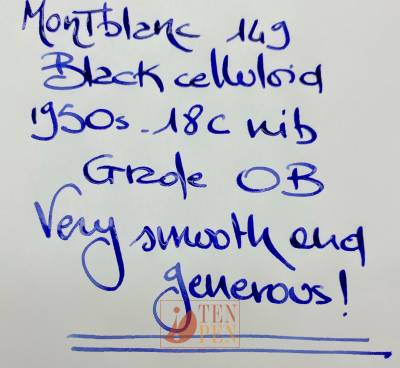 Montblanc 149
Black celluloid
1950s - 18C nib
Grade OB
Very smooth and
generous!
TEN
PEN